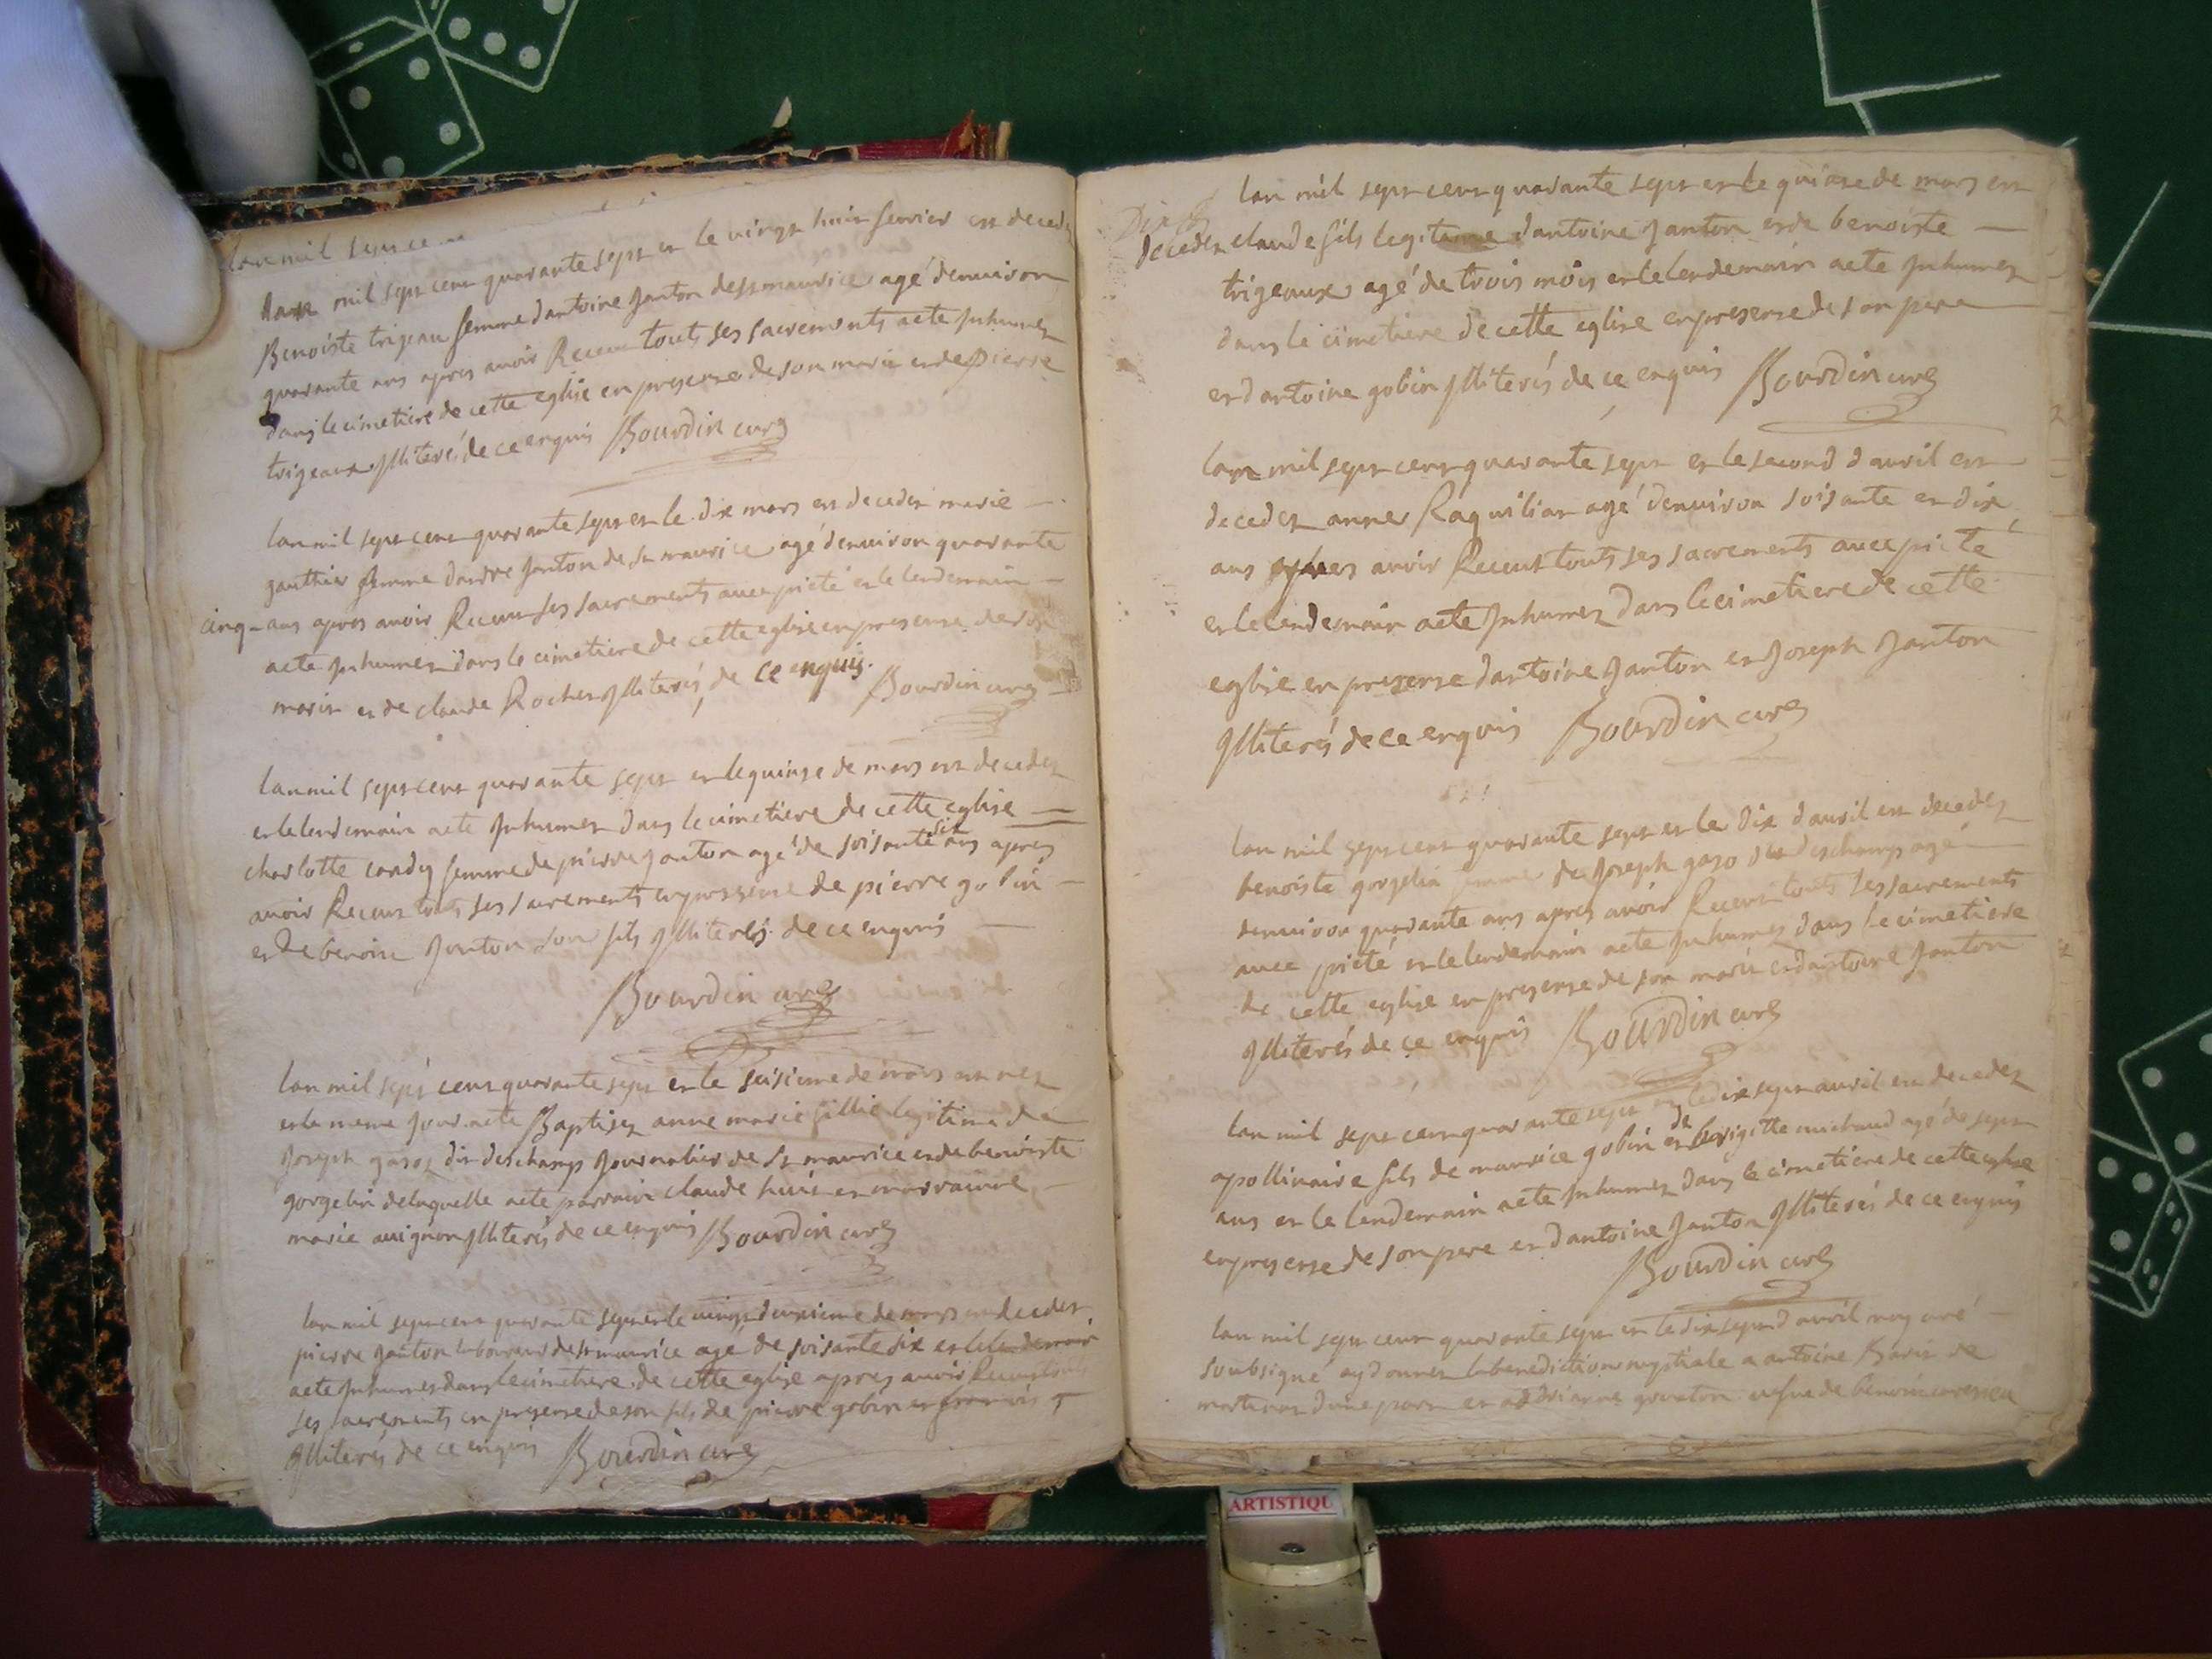 lan mil sept ce
lan mil sept cent quarante sept et le vingt huit fevrier est decede
Benoiste trigeau femme dantoine Janton de st maurice agé denuiron
quarante ans apres auoir Receu touts ses sacrements aete Inhumez
dans le cimetiere de cette eglise en presense de son marie et de pierre
trigeaux Illiterés de ce enquis Bourdin curé
lan mil sept cent quarante sept et le dix mars est decedez marie
gauthier femme dandre Janton de st maurice agé denuiron quarante
cinq ans apres auoir Receu ses sacrements auec pieté et le lendemain
aete Inhumez dans le cimetiere de cette eglise en presense de son
marie et de claude Rocher Illiterés de ce enquis. Bourdin curé
lan mil sept cent quarante sept et le quinse de mars est decedez
et le lendemain aete Inhumez dans le cimetiere de cette eglise
charlotte femme de pierre Janton agé de soisante six ans apres
auoir Receu touts ses sacrements en presense de pierre gobin
et de benoit Janton son fils Illiterés de ce enquis
Bourdin curé
lan mil sept cent quarante sept et le seisieme de mars est nez
et le meme Jour aete Baptisez anne marie fillie legitime de
Joseph gasoz dit deschamp Journalier de st maurice et de benoiste
gorgelin de laquelle aete parrain claude huit et marraine
marie auignon Illiterés de ce enquis Bourdin curé
lan mil sept cent quarante sept et le vingt deuxieme de mars est decedez
pierre Janton laboureur de st maurice agé de soisante six et le lendemain
aete Inhumez dans le cimetiere de cette eglise apres auoir Receu touts
ses sacrements en presense de son fils de pierre gobin et
Illiterés de ce enquis Bourdin curé
lan mil sept cent quarante sept et le quinse de mars est
decedez claude fils legitime dantoine Janton et de benoiste
trigeaux agé de trois mois et le lendemain aete Inhumez
dans le cimetiere de cette eglise en presense de son pere
et dantoine gobin Illiterés de ce enquis Bourdin curé
lan mil sept cent quarante sept et le second dauril est
decedez anne Raquilian agé denuiron soisante et dix
ans apres auoir Receu touts ses sacrements auec pieté
et le lendemain aete Inhumez dans le cimetiere de cette
eglise en presense dantoine Janton et Joseph Janton
Illiterés de ce enquis Bourdin curé
lan mil sept cent quarante sept et le dix dauril est decedez
benoiste gorgelin femme de Joseph gaso dit deschamp agé
denuiron quarante ans apres auoir Receu touts ses sacrements
auec pieté et le lendemain aete Inhumez dans le cimetiere
de cette eglise en presense de son marie et dantoine Janton
Illiterés de ce enquis Bourdin curé
lan mil sept cent quarante sept et le dix sept auril est decedez
apollinaire fils de maurice gobin et de brigitte michaud agé de sept
ans et le lendemain aete Inhumez dans le cimetiere de cette eglise
en presense de son pere et dantoine Janton Illiterés de ce enquis
Bourdin curé
lan mil sept cent quarante sept et le dix sept dauril moy curé
soubsigné ay donnez la benediction nuptiale a antoine
dune part et a
ARTISTIQU